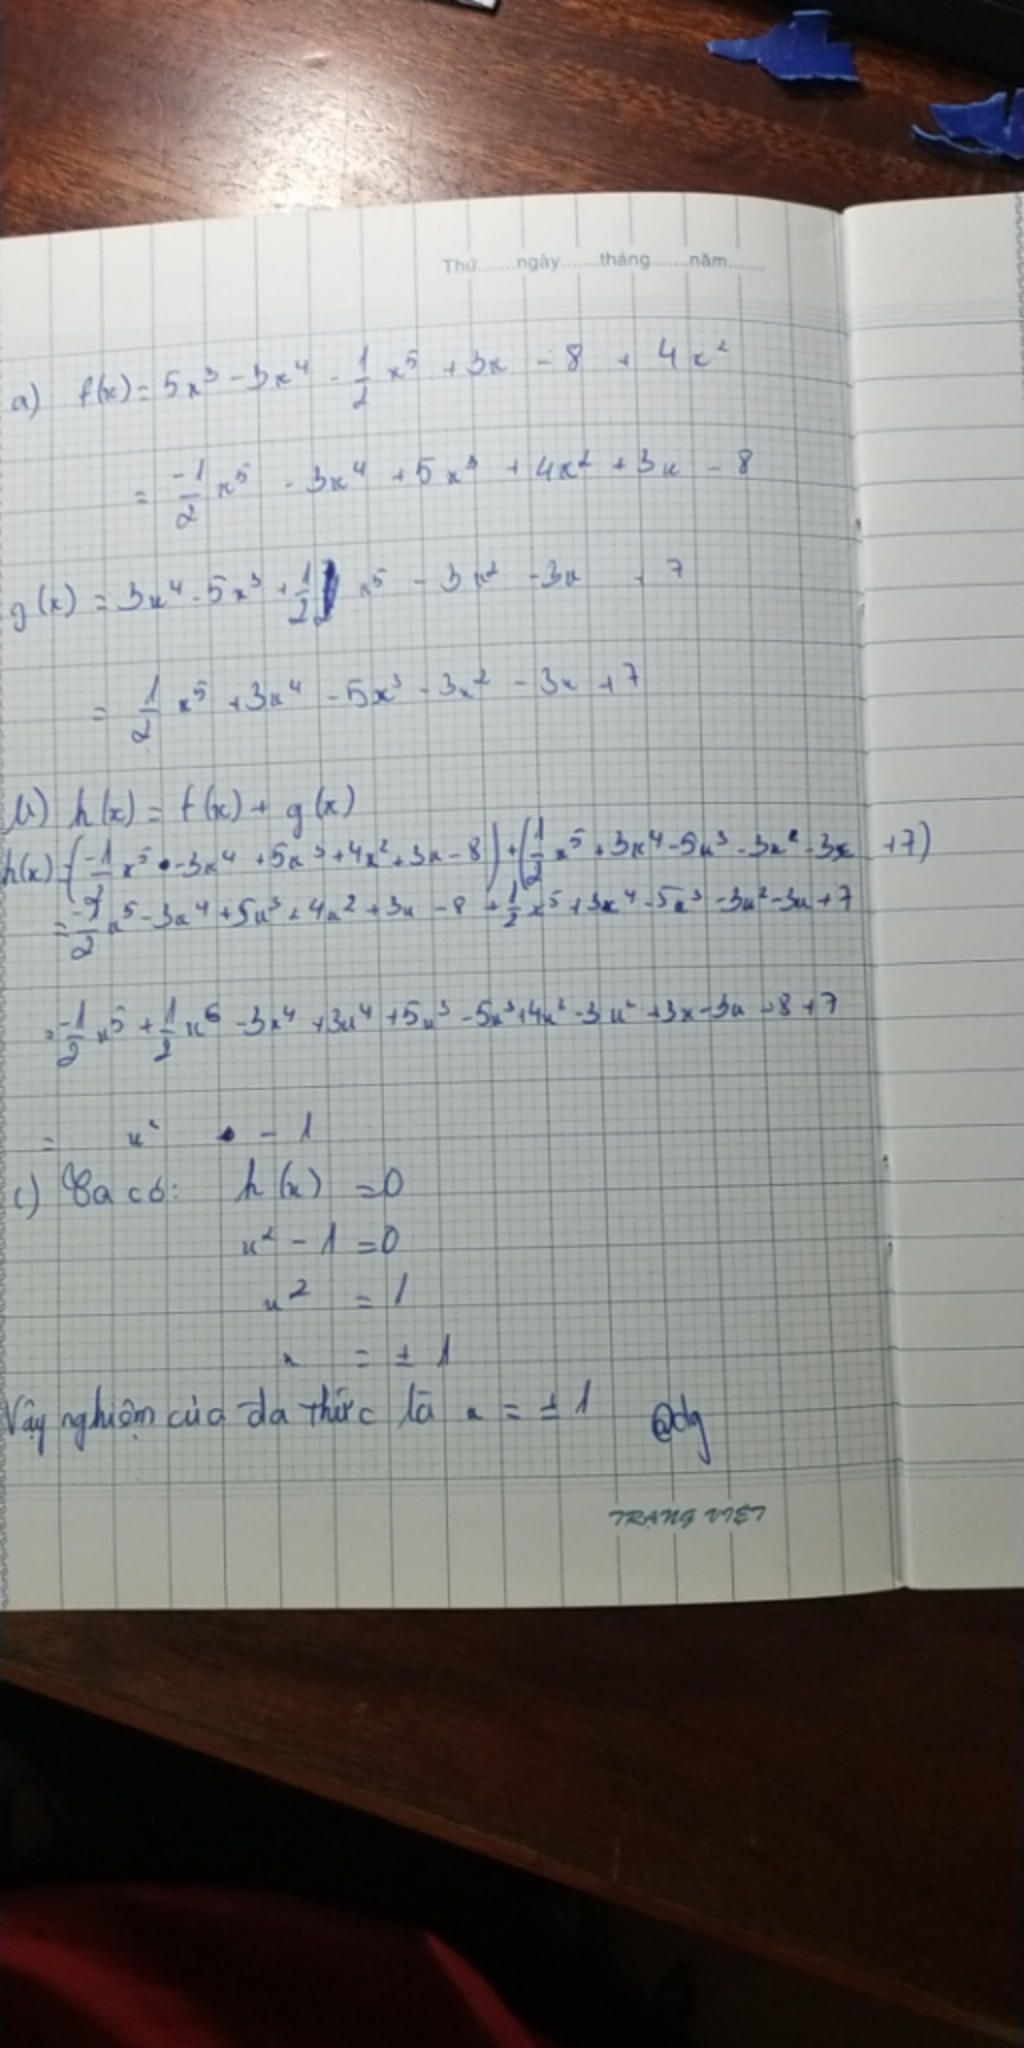 Thứ.......ngày.......tháng.......năm.......
a) f(x) = 5x³ - 3x⁴ - 1/2 x⁵ + 3x - 8 + 4x²
= -1/2 x⁵ - 3x⁴ + 5x³ + 4x² + 3x - 8
g(x) = 3x⁴ - 5x³ + 1/2 x⁵ - 3x² - 3x + 7
= 1/2 x⁵ + 3x⁴ - 5x³ - 3x² - 3x + 7
b) h(x) = f(x) + g(x)
h(x) = (-1/2 x⁵ - 3x⁴ + 5x³ + 4x² + 3x - 8) + (1/2 x⁵ + 3x⁴ - 5x³ - 3x² - 3x + 7)
= -1/2 x⁵ - 3x⁴ + 5x³ + 4x² + 3x - 8 + 1/2 x⁵ + 3x⁴ - 5x³ - 3x² - 3x + 7
= -1/2 x⁵ + 1/2 x⁵ - 3x⁴ + 3x⁴ + 5x³ - 5x³ + 4x² - 3x² + 3x - 3x - 8 + 7
= x² - 1
c) Ta có: h(x) = 0
x² - 1 = 0
x² = 1
x = ± 1
Vậy nghiệm của đa thức là x = ± 1 @dg
TRANG VIỆT